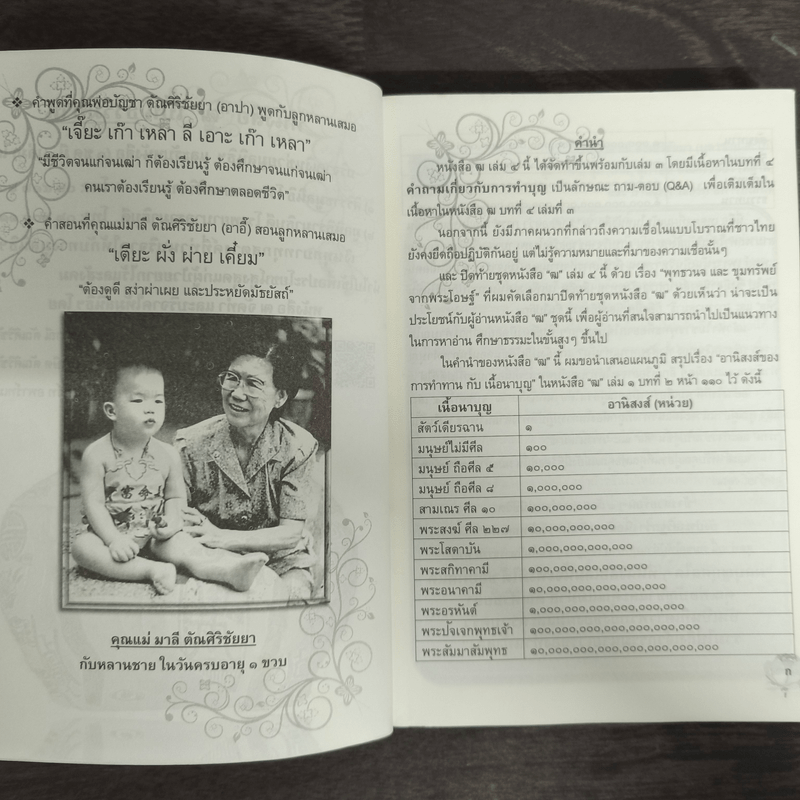 ❖ คำพูดที่คุณพ่อบัญชา ตัณศิริชัยยา (อาปา) พูดกับลูกหลานเสมอ
"เจี๊ยะ เก๊า เหลา ลี เอาะ เก๊า เหลา"
"มีชีวิตจนแก่จนเฒ่า ก็ต้องเรียนรู้ ต้องศึกษาจนแก่จนเฒ่า
คนเราต้องเรียนรู้ ต้องศึกษาตลอดชีวิต"
❖ คำสอนที่คุณแม่มาลี ตัณศิริชัยยา (อาอี๊) สอนลูกหลานเสมอ
"เตียะ ผั่ง ผ่าย เคี่ยม"
"ต้องดูดี สง่าผ่าเผย และประหยัดมัธยัสถ์"
คุณแม่ มาลี ตัณศิริชัยยา
กับหลานชาย ในวันครบอายุ ๑ ขวบ
คำนำ
หนังสือ ฒ เล่ม ๔ นี้ ได้จัดทำขึ้นพร้อมกับเล่ม ๓ โดยมีเนื้อหาในบทที่ ๔
คำถามเกี่ยวกับการทำบุญ เป็นลักษณะ ถาม-ตอบ (Q&A) เพื่อเติมเต็มใน
เนื้อหาในหนังสือ ฒ บทที่ ๔ เล่มที่ ๓
นอกจากนี้ ยังมีภาคผนวกที่กล่าวถึงความเชื่อในแบบโบราณที่ชาวไทย
ยังคงยึดถือปฏิบัติกันอยู่ แต่ไม่รู้ความหมายและที่มาของความเชื่อนั้นๆ
และ ปิดท้ายชุดหนังสือ "ฒ" เล่ม ๔ นี้ ด้วย เรื่อง "พุทธวจน และ ขุมทรัพย์
จากพระโอษฐ์" ที่ผมคัดเลือกมาปิดท้ายชุดหนังสือ "ฒ" ด้วยเห็นว่า น่าจะเป็น
ประโยชน์กับผู้อ่านหนังสือ "ฒ" ชุดนี้ เพื่อผู้อ่านที่สนใจสามารถนำไปเป็นแนวทาง
ในการหาอ่าน ศึกษาธรรมะในขั้นสูงๆ ขึ้นไป
ในคำนำของหนังสือ "ฒ" นี้ ผมขอนำเสนอแผนภูมิ สรุปเรื่อง "อานิสงส์ของ
การทำทาน กับ เนื้อนาบุญ" ในหนังสือ "ฒ" เล่ม ๑ บทที่ ๒ หน้า ๑๑๐ ไว้ ดังนี้
เนื้อนาบุญ อานิสงส์ (หน่วย)
สัตว์เดียรฉาน ๑
มนุษย์ไม่มีศีล ๑๐๐
มนุษย์ ถือศีล ๕ ๑๐,๐๐๐
มนุษย์ ถือศีล ๘ ๑,๐๐๐,๐๐๐
สามเณร ศีล ๑๐ ๑๐๐,๐๐๐,๐๐๐
พระสงฆ์ ศีล ๒๒๗ ๑๐,๐๐๐,๐๐๐,๐๐๐
พระโสดาบัน ๑,๐๐๐,๐๐๐,๐๐๐,๐๐๐
พระสกิทาคามี ๑๐๐,๐๐๐,๐๐๐,๐๐๐,๐๐๐
พระอนาคามี ๑๐,๐๐๐,๐๐๐,๐๐๐,๐๐๐,๐๐๐
พระอรหันต์ ๑,๐๐๐,๐๐๐,๐๐๐,๐๐๐,๐๐๐,๐๐๐
พระปัจเจกพุทธเจ้า ๑๐๐,๐๐๐,๐๐๐,๐๐๐,๐๐๐,๐๐๐,๐๐๐
พระสัมมาสัมพุทธ ๑๐,๐๐๐,๐๐๐,๐๐๐,๐๐๐,๐๐๐,๐๐๐,๐๐๐
ก